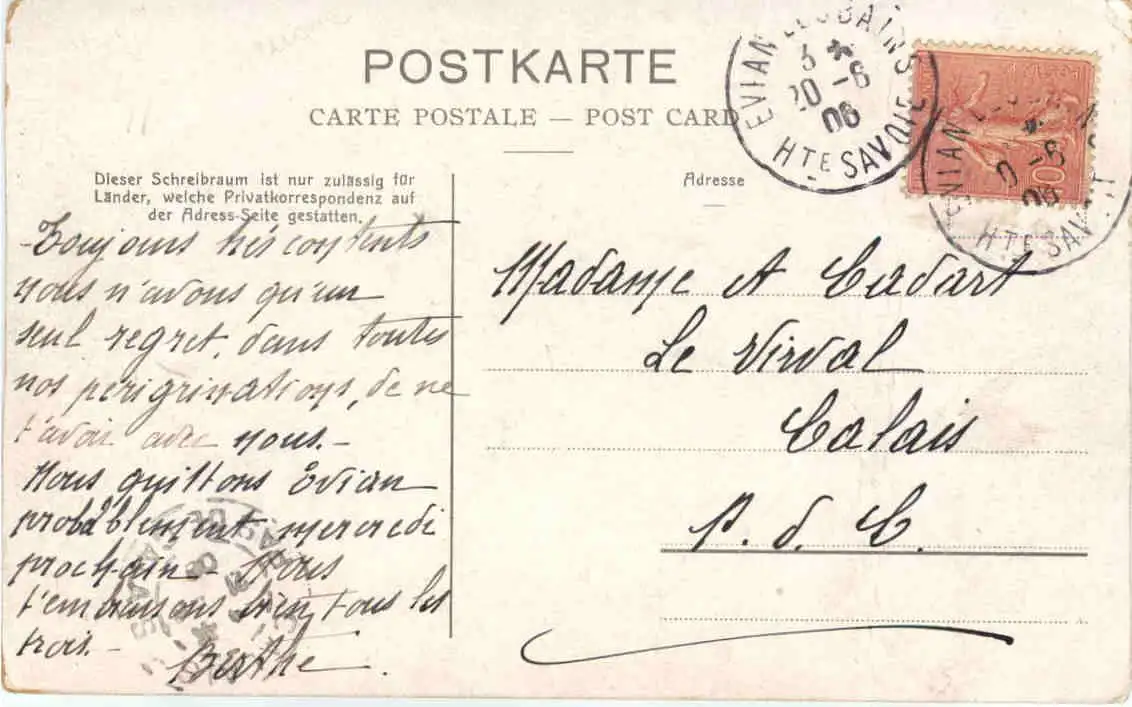 POSTKARTE
CARTE POSTALE — POST CARD
EVIAN LES BAINS
3
20 - 6
06
HTE SAVOIE
EVIAN LES BAINS
0 - 6
06
HTE SAVOIE
10
Dieser Schreibraum ist nur zulässig für
Länder, welche Privatkorrespondenz auf
der Adress-Seite gestatten.
Adresse
Toujours très contents
nous n'avons qu'un
seul regret, dans toutes
nos périgrinations, de ne
t'avoir avec nous. -
Nous quittons Evian
probablement mercredi
prochain - Nous
t'embrassons bien tous les
trois. -
Berthe.
Madame A Cadart
Le Virval
Calais
P. d. C.
PAS DE CALAIS